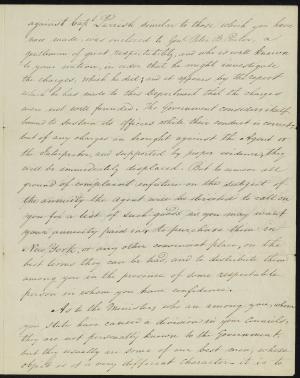 against Capt. Parrish similar to those which you have
now made was enclosed to Genl. Peter B. Porter, a
gentleman of great respectability, and who is well known
to your nation, in order that he might investigate
the charges, which he did; and it appears by the report
which he has made to this Department that the charges
were not well founded. The Government considers itself
bound to sustain its officers while their conduct is correct,
but if any charges are brought against the Agent or
the Interpreter, and supported by proper evidence, they
will be immediately displaced. But to remove all
ground of complaint in future on the subject of
the annuity the agent will be directed to call on
you for a list of such goods as you may want
your annuity paid in, to purchase them in
New York, or any other convenient place, on the
best terms they can be had, and to distribute them
among you in the presence of some respectable
person in whom you have confidence.
As to the Ministers who are among you, whom
you state have caused a division in your Councils,
they are not personally known to the Government,
but they usually are some of our best men, whose
objects are of a very different character. It is to